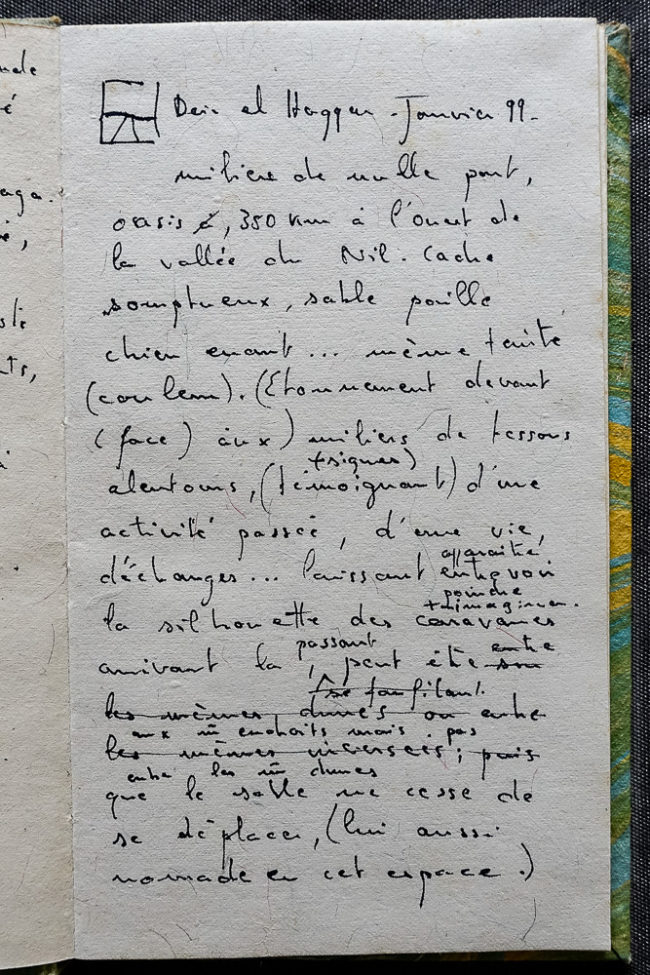 Deir el Haggar - Janvier 99.
milieu de nulle part,
oasis, 350 km à l'ouest de
la vallée du Nil. Cache
somptueux, sable paille
chien errant... même teinte
(couleur). (Etonnement devant
(face) aux) milliers de tessons
+ signes)
alentours, (témoignant) d'une
activité passée, d'une vie,
apparaitre
d'échanges... laissant entrevoir
poindre
+ imaginer.
la silhouette des caravanes
passant entre
arrivant là, peut être son
se faufilant
les mêmes dunes ou entre
aux m endroits mais . pas
les mêmes inversées ; puis
entre les m dunes
que le sable ne cesse de
se déplacer, (lui aussi
nomade en cet espace.)
nale
é
aga.
sle
ts,